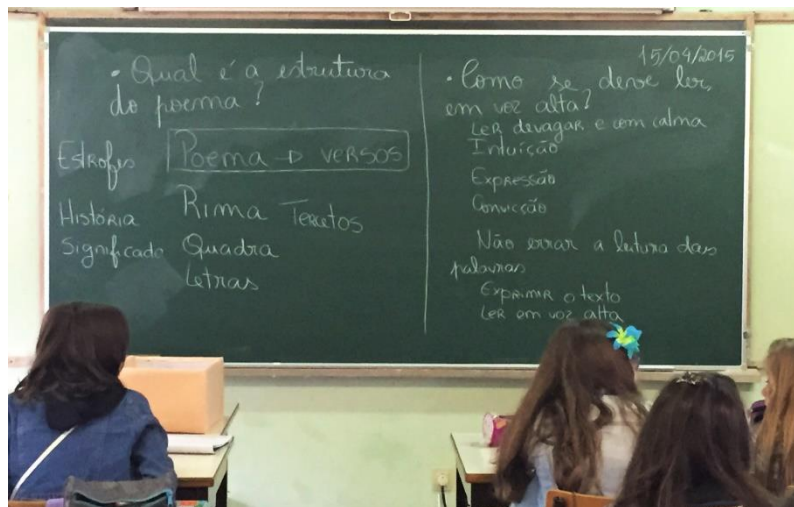 15/04/2015
• Qual é a estrutura
do poema?
Estrofes
Poema → versos
História
Rima Tercetos
Significado Quadra
Letras
• Como se deve ler,
em voz alta?
Ler devagar e com calma
Intuição
Expressão
Convicção
Não errar a leitura das
palavras
Exprimir o texto
Ler em voz alta